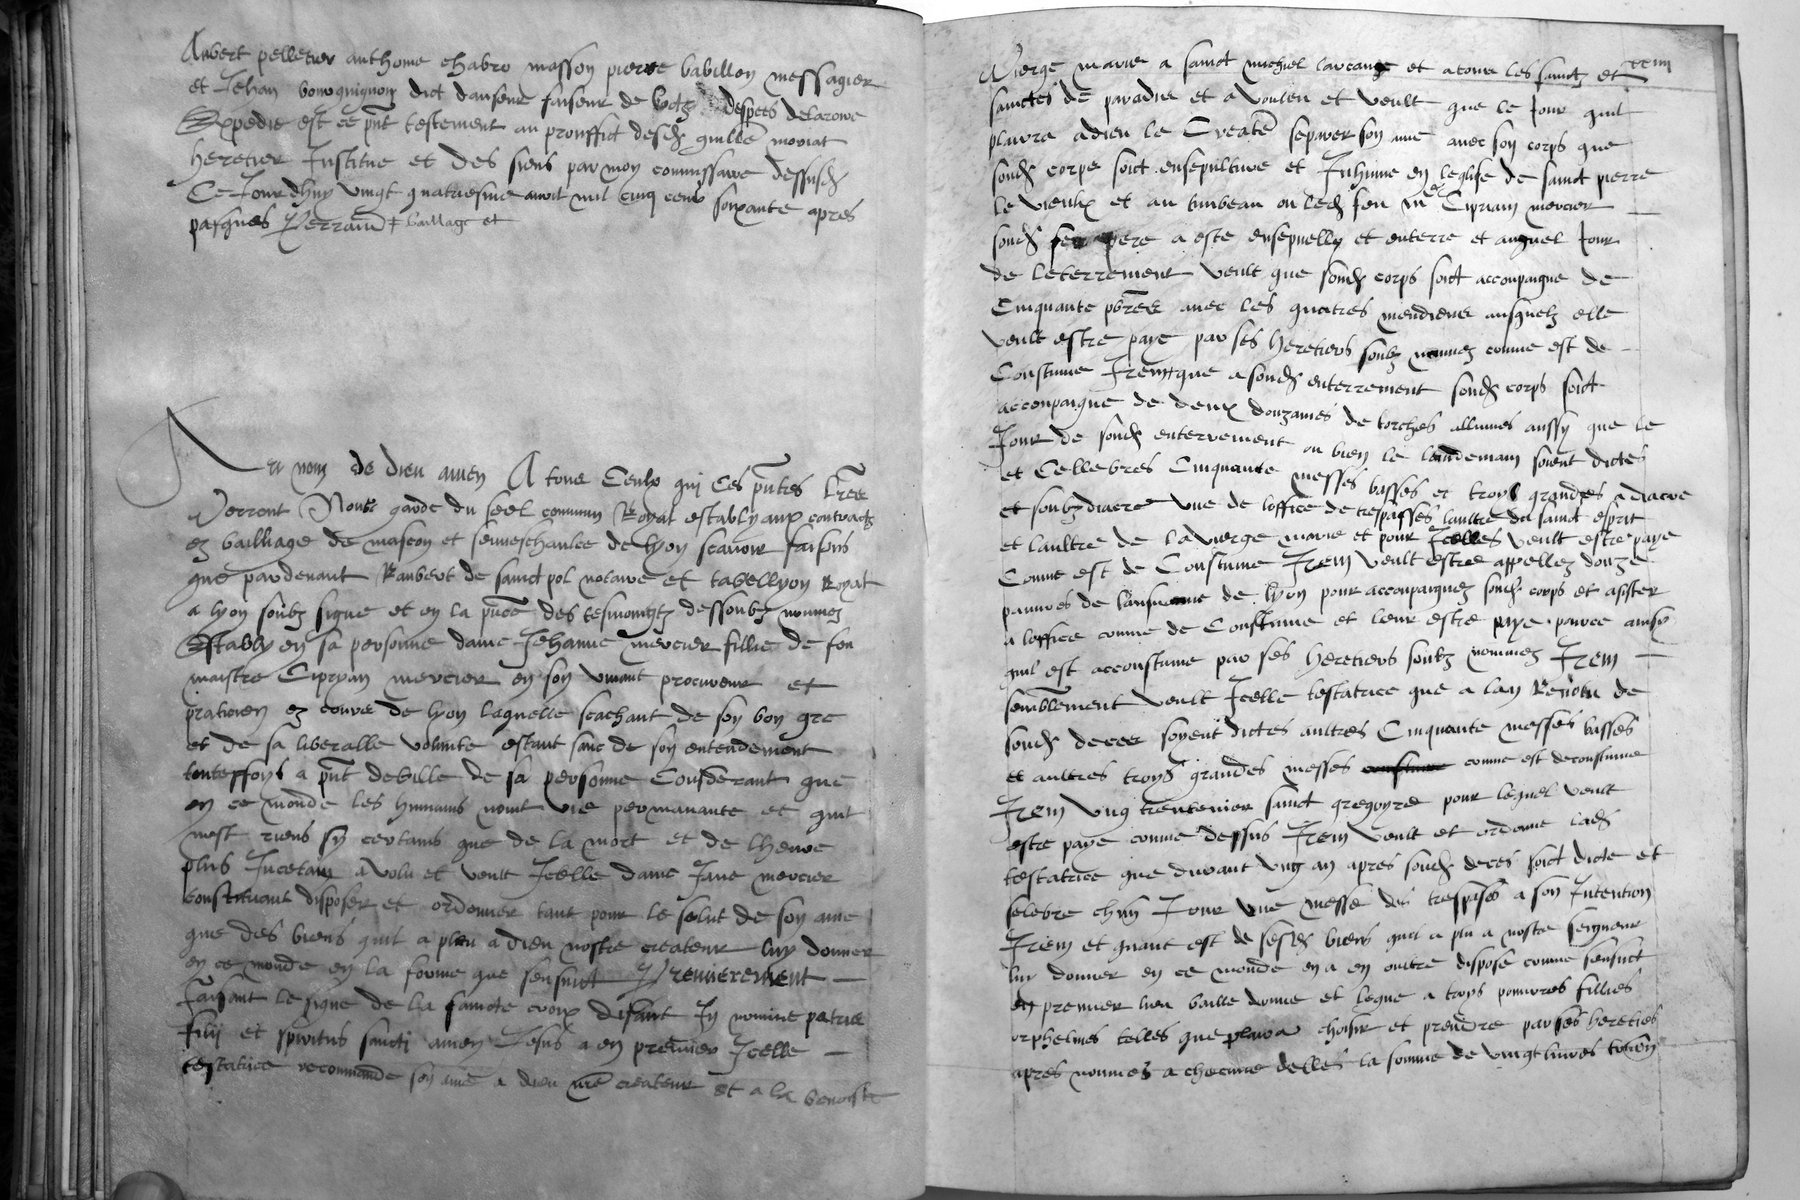 Aubert pelletier anthoine chabro masson pierre babillon messagier
et Jehan bourguignon dict danseur faiseur de despees delarowe
Expedie est ce pnt testement au prouffict desd guille moriat
heretier Institue et des siens par moy commissaire dessusd
Ce Jourdhuy vingt quatriesme avril mil cinq cens soixante apres
pasques Perraud + baillage et
Au nom de dieu amen A tous Ceulx qui ces pntes lres
Verront Nous garde du seel commun Royal estably aux contractz
ez bailliage de mascon et seneschaulce de lyon scavoir faisons
que pardevant Raubert de sainct pol notaire et tabellyon Royal
a lyon soubz signe et en la pnce des tesmoingtz dessoubz nommez
Estably en sa personne dame Jehanne mercier fillie de feu
maistre Cipryan mercier en son vivant procureur et
praticien ez cours de lyon laquelle scachant de son bon gre
et de sa liberalle volunte estant sane de son entendement
touteffoys a pnt debille de sa personne Considerant que
en ce monde les humains nount vie permanante et quil
nest riens sy certains que de la mort et de lheure
plus Incetain a volu et veult Icelle dame Jane mercier
constituant disposer et ordonner tant pour le salut de son ame
que des biens quil a pleu a dieu nostre createur luy donner
en ce monde en la forme que sensuict Premierement
faisant le signe de la saincte croix disant In nomine patris
filij et spiritus sancti amen Jesus a en premier Icelle
testatrice recommande son ame a dieu nre createur et a la benoiste
xxiiii
Vierge marie a sainct michiel larcange et a tous les sainctz et
sainctes de paradis et a voulu et veult que le Jour quil
plaira a dieu le Creatr separer son ame avec son corps que
sond corps soict ensepulture et Inhume en leglise de sainct pierre
le vieulx et au tumbeau ou led feu me Ciprian mercier
sond feu pere a este ensepuelly et enterre et auquel Jour
de leterrement veult que sond corps soict accompaigne de
Cinquante pbres avec les quatres mendiens ausquelz elle
veult estre paye par ses heretiers soubz nommez comme est de
Coustume Item que a sond enterrement sond corps soict
accompaigne de deux douzaines de torches allumes aussy que le
Jour de sond enterrement ou bien le landemain soient dictes
et Cellebres Cinquante messes basses et troys grandes a diacre
et soubzdiacre une de loffice de trespasses laultre du sainct esprit
et laultre de la vierge marie et pour Icelles veult estre paye
Comme est de Coustume Item veult estre appellez douze
pauvres de laumosne de lyon pour accompaignez sond corps et asister
a loffice comme de Coustume et leur estre paye parce ainsy
quil est accoustume par ses heretiers soubz nommez Item
semblement veult Icelle testatrice que a lan Revolu de
sond deces soyent dictes aultres Cinquante messes basses
et aultres troys grandes messes comme est de coustume
Item ung trentenier sainct gregoyre pour lequel veult
estre paye comme dessus Item veult et ordonne lad
testatrice que durant ung an apres sond deces soict dicte et
selebre chun Jour une messe des trespasses a son Intention
Item et quant est de sesd biens quil a plu a nostre seigneur
luy donner en ce monde en a en oultre dispose comme sensuict
en premier lieu baille donne et legue a troys pouvres fillies
orphelines telles que plaira choisir et prendre par ses heretiers
apres nommez a chacune delles la somme de vingt livres tourn